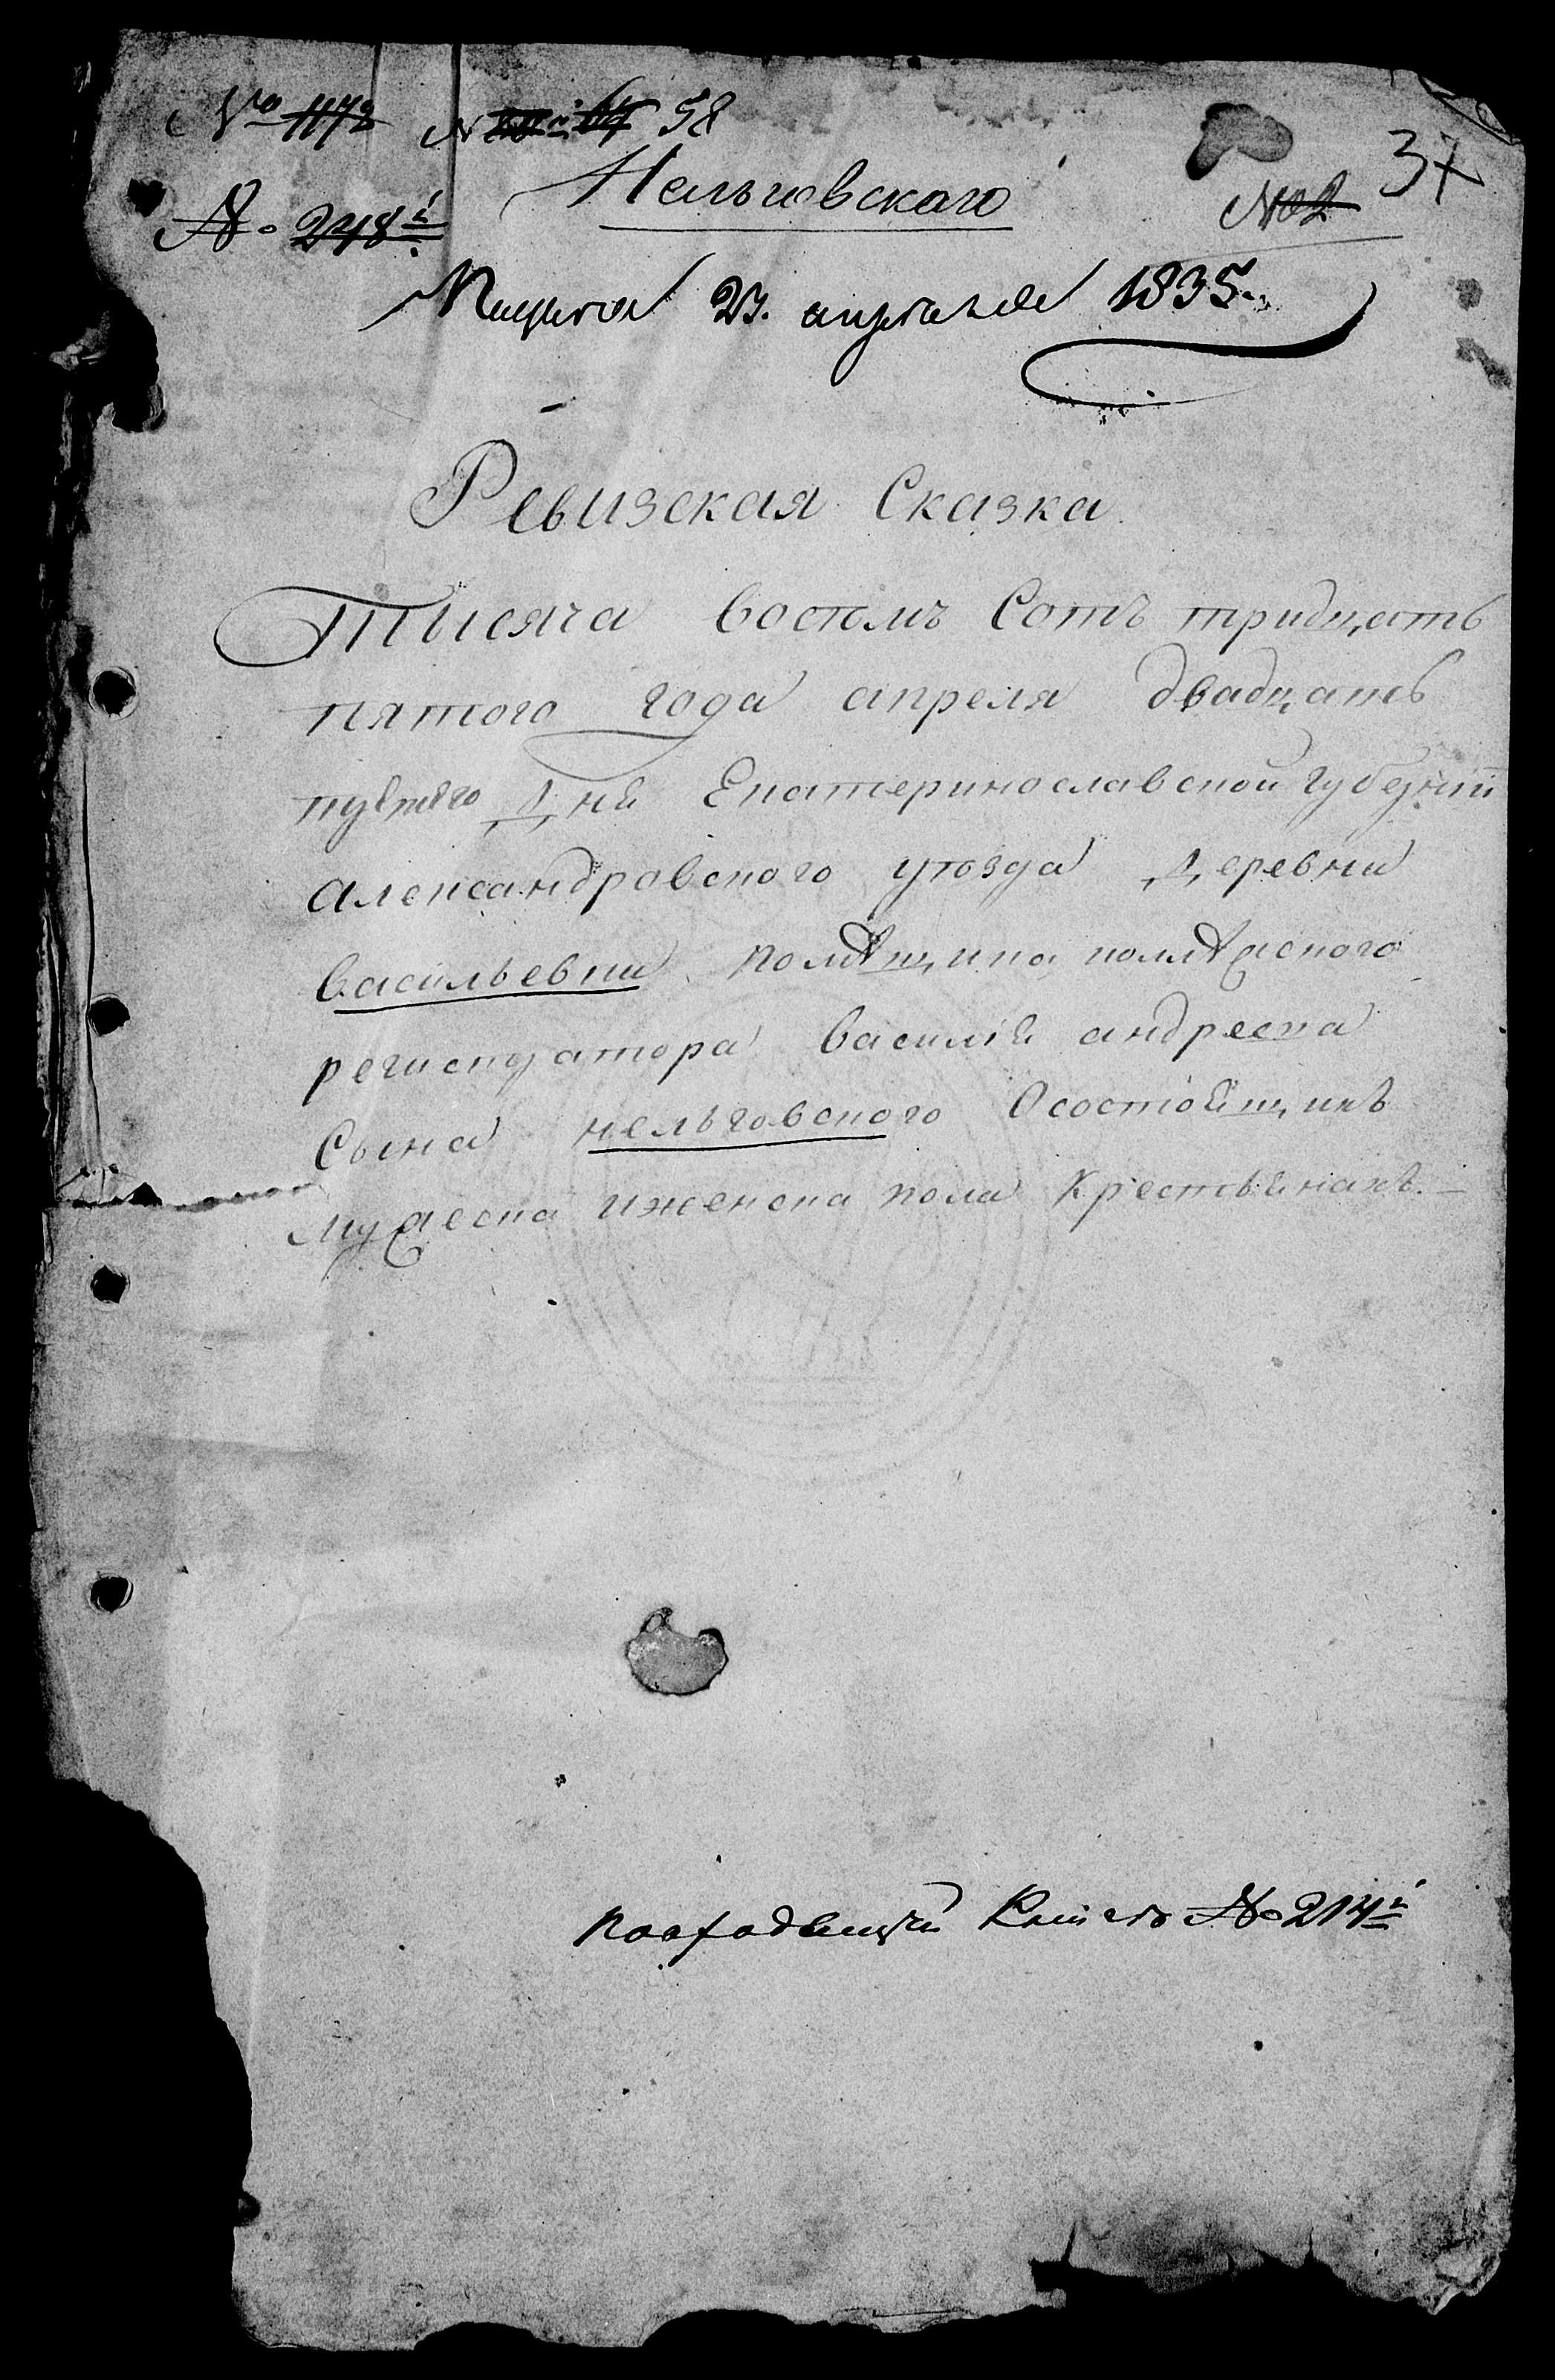 № 1172 № 58
Нельговскаго
37
№ 248й
№ 2
23. апреля 1835.
Ревизская Сказка
Тысяча восемъ Сотъ тридцать
пятого года апреля двадцать
первого дня Екатеринославской губернии
александровского уезда деревни
васильевки помещика
регистратора василия андреева
Сына нельговского О состоящихъ
мужеска и женска пола крестьянахъ.
№ 214й